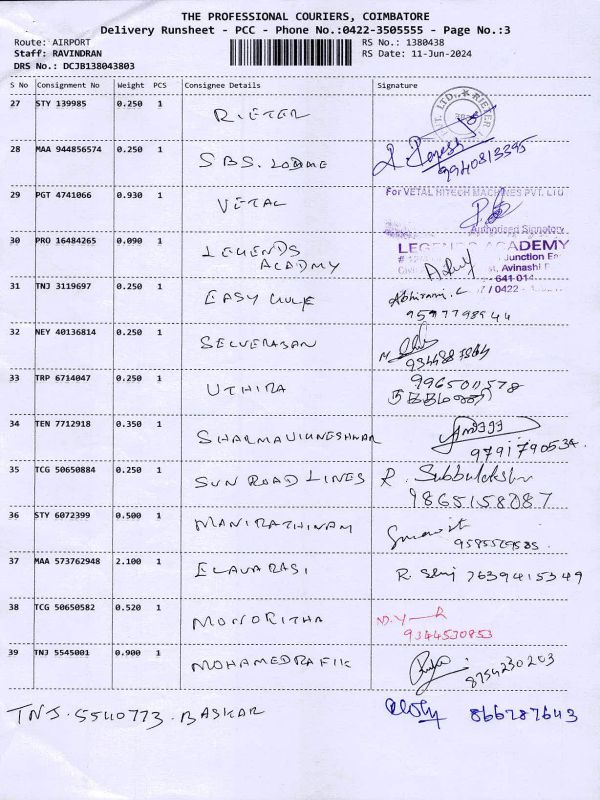 THE PROFESSIONAL COURIERS, COIMBATORE
Delivery Runsheet - PCC - Phone No.:0422-3505555 - Page No.:3
Route: AIRPORT RS No.: 1380438
Staff: RAVINDRAN RS Date: 11-Jun-2024
DRS No.: DCJB138043803
S No Consignment No Weight PCS Consignee Details Signature
27 STY 139985 0.250 1 RIETER
28 MAA 944856574 0.250 1 SBS. 9940813395
29 PGT 4741066 0.930 1 VETAL For VETAL HITECH MACHINES PVT. LTD
Authorised Signatory
30 PRO 16484265 0.090 1 LEGENDS ACADMY LEGENDS ACADEMY
Junction
st, Avinashi
641 014
31 TNJ 3119697 0.250 1 EASY Abhirami. C / 0422
9597798944
32 NEY 40136814 0.250 1 SELVERASAN
33 TRP 6714047 0.250 1 UTHIRA 996500578
34 TEN 7712918 0.350 1 SHARMAVIGNESHWAR
9791790534.
35 TCG 50650884 0.250 1 SUN ROAD LINES R. Subbulakshmi
9865158087
36 STY 6072399 0.500 1 MANIRATHINAM
37 MAA 573762948 2.100 1 ELAVARASI R 7639415349
38 TCG 50650582 0.520 1 MONORITHA
9344530853
39 TNJ 5545001 0.900 1 MOHAMEDRAFIK 8754230203
TNJ. 5540773. BASKAR 866787643